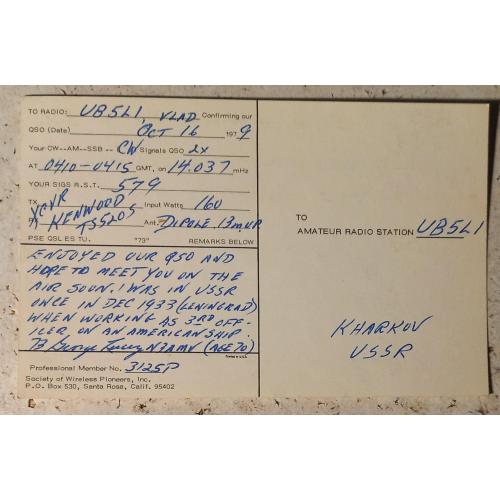 TO RADIO: UB5L1, VLAD Confirming our
QSO (Date) OCT 16 1979
Your CW--AM--SSB -- CW Signals QSO 2x
AT 0410-0415 GMT, on 14.037 mHz
YOUR SIGS R.S.T. 579
TX XCVR KENWOOD TS520S Input Watts 160
Ant. DIPOLE, 13m UP
PSE QSL ES TU. "73" REMARKS BELOW
ENJOYED OUR QSO AND
HOPE TO MEET YOU ON THE
AIR SOON. I WAS IN USSR
ONCE IN DEC 1933 (LENINGRAD)
WHEN WORKING AS 3RD OFF-
ICER, ON AN AMERICAN SHIP
73 George N3AMV (AGE 70)
Printed in U.S.A.
Professional Member No. 3125P
Society of Wireless Pioneers, Inc.
P.O. Box 530, Santa Rosa, Calif. 95402
TO
AMATEUR RADIO STATION UB5L1
KHARKOV
USSR